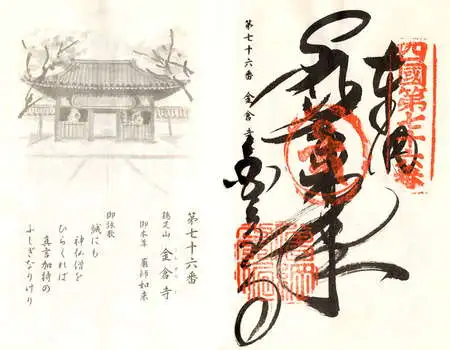 四國第七十六番
奉納
薬師如来
金倉寺
第七十六番 金倉寺
第七十六番
鶏足山 金倉寺
御本尊 薬師如来
御詠歌
誠にも
神仏僧を
ひらくれば
真言加持の
ふしぎなりけり